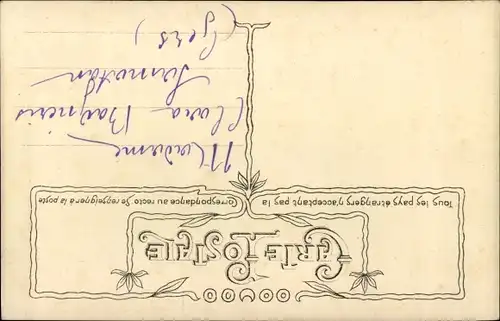 CARTE POSTALE
Tous les pays étrangers n'acceptant pas la
Correspondance au recto Se renseigner à la poste
Madame
Clara
(Gers)